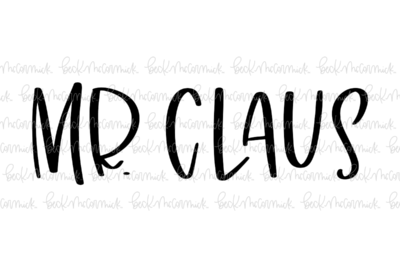 MR. CLAUS